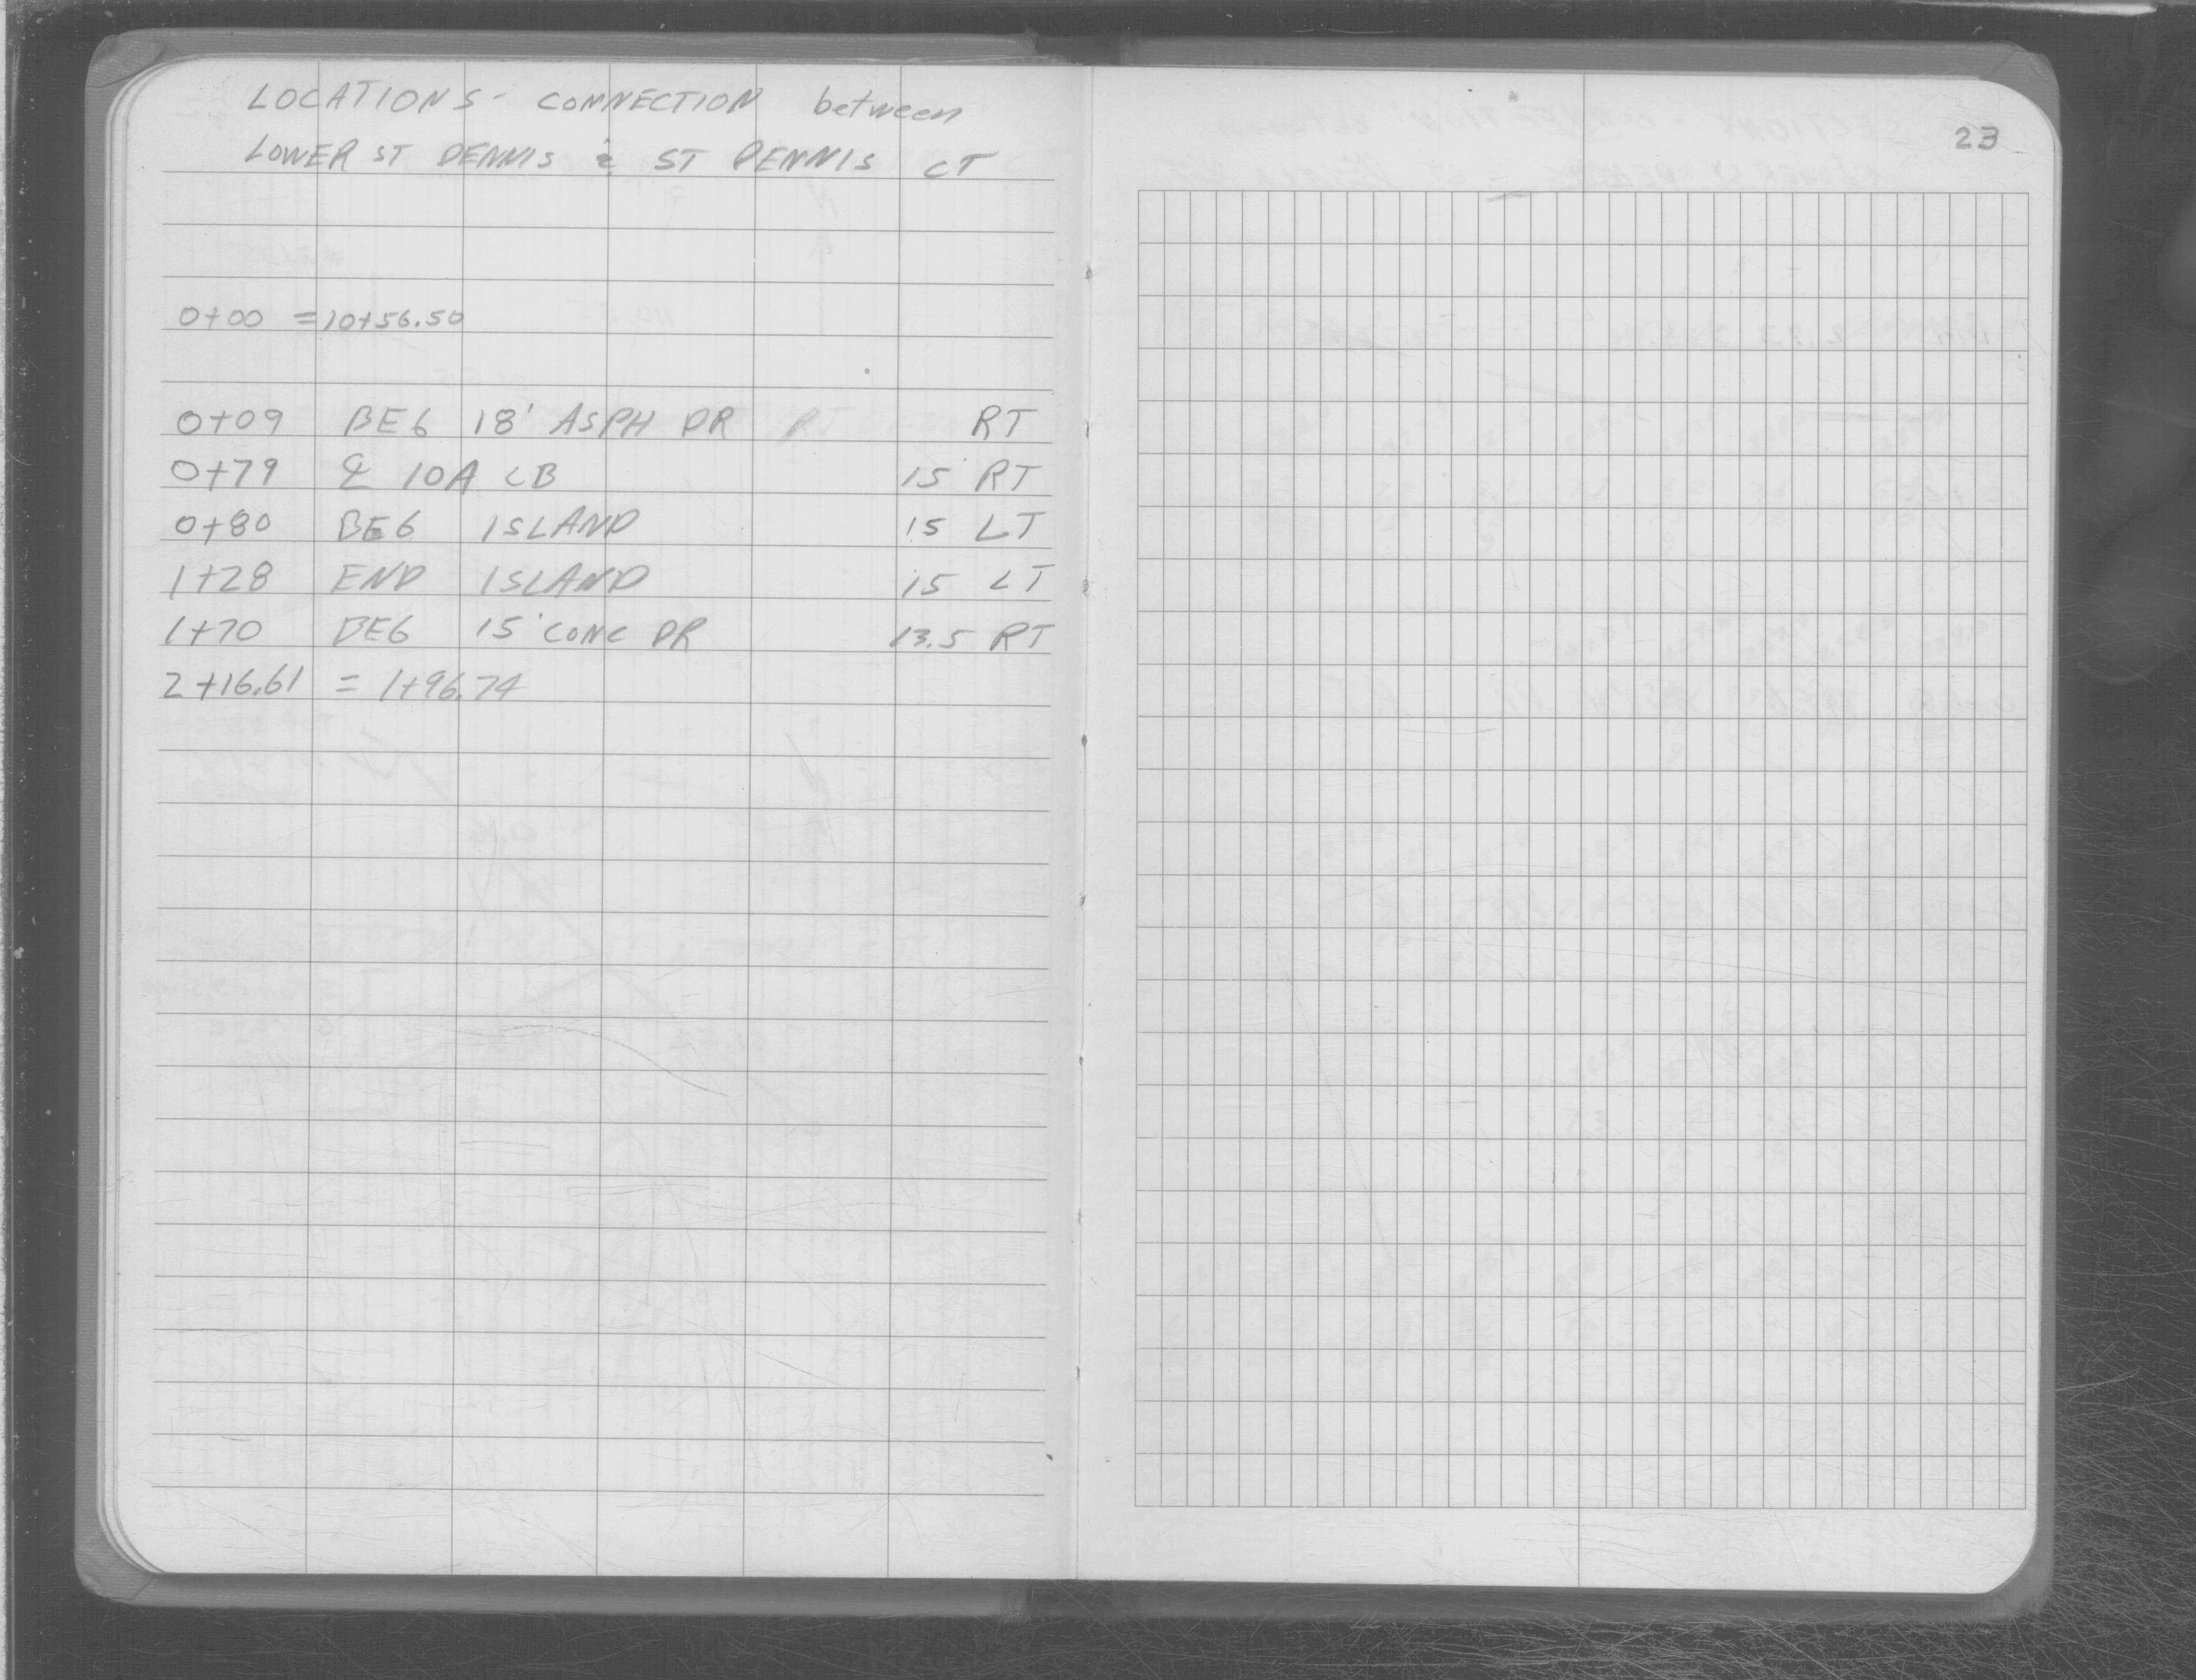 LOCATIONS - CONNECTION between
LOWER ST DENNIS & ST DENNIS CT
23
0+00 = 10+56.50
0+09 BEG 18' ASPH DR RT
0+79 ℄ 10A CB 15 RT
0+80 BEG ISLAND 15 LT
1+28 END ISLAND 15 LT
1+70 BEG 15' CONC DR 13.5 RT
2+16.61 = 1+96.74